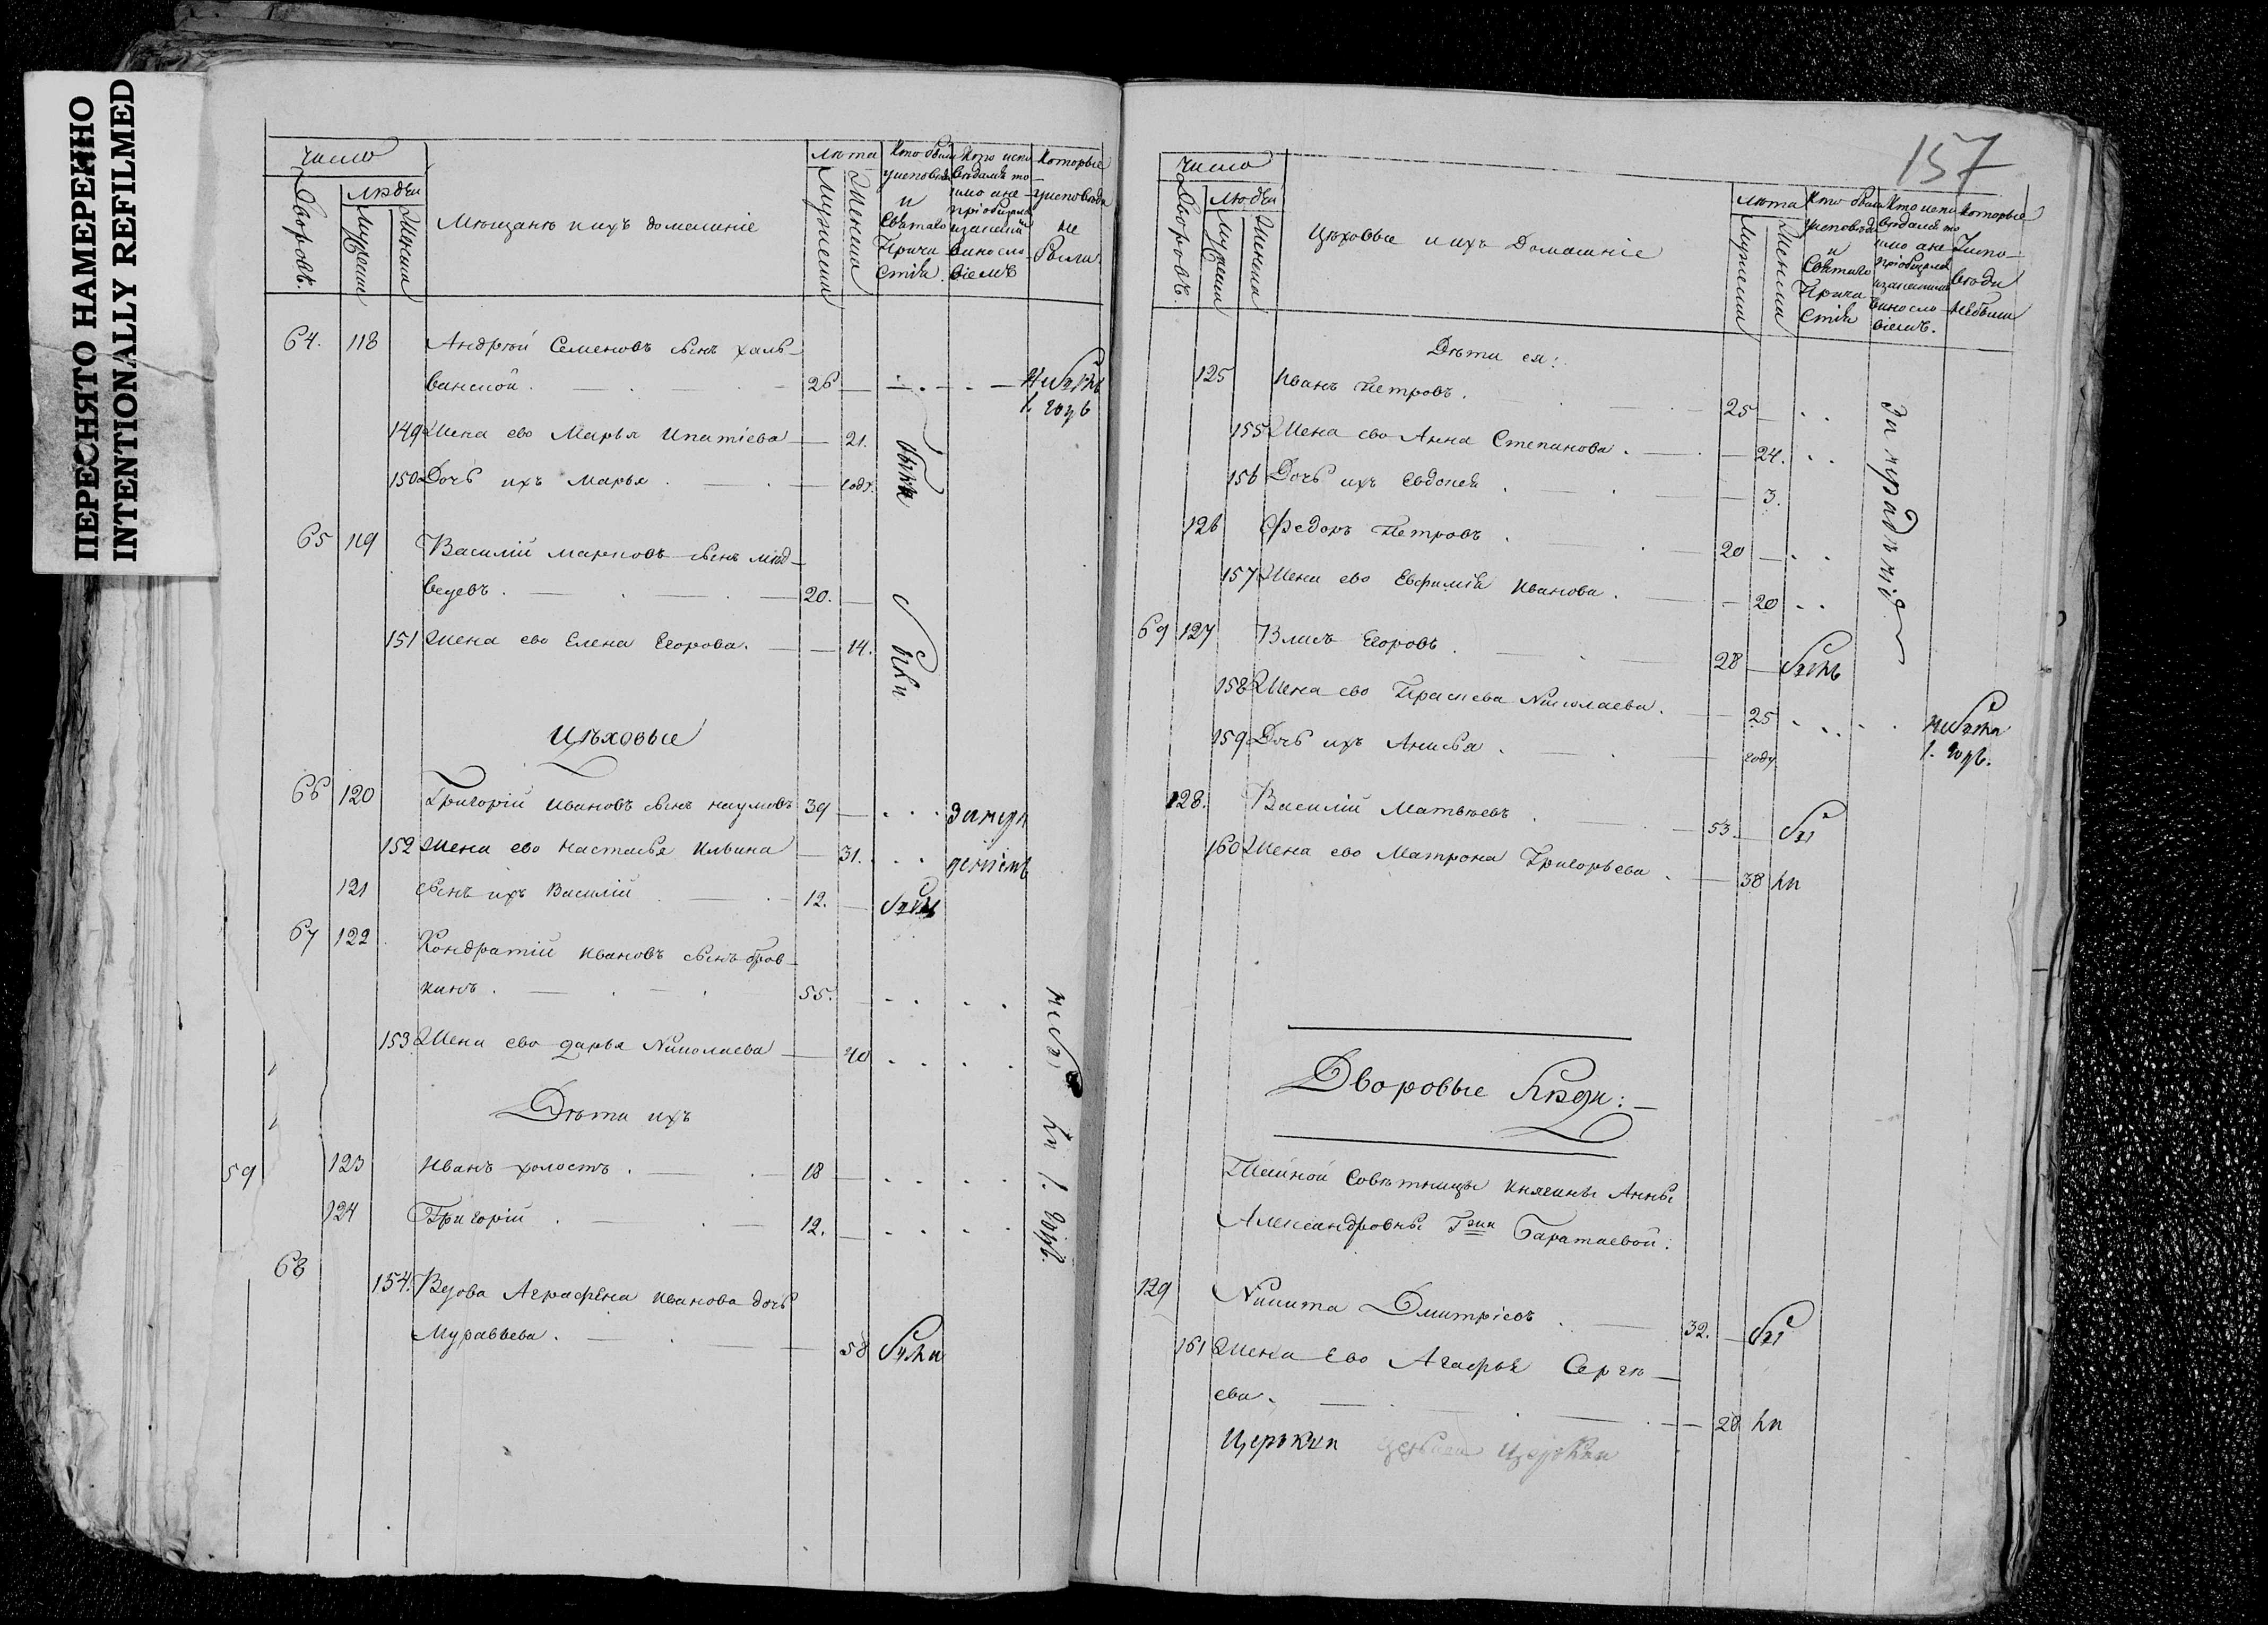 ПЕРЕСНЯТО НАМЕРЕННО
INTENTIONALLY REFILMED
число
Дворовъ.
людей
Мужеска
Женска
Мещанъ и ихъ домашніе
лѣта
Мужеска
Женска
Кто были у исповѣди и Святаго Причастія.
Кто исповѣдался токмо а не пріобщался и за какимъ винословіемъ
Которые у исповѣди не были
64. 118 Андрѣй Семеновъ сынъ халь-
ванской. 26 небылъ
1. годъ
149 Жена ево Марья Ипатіева 21. были
150 Дочь ихъ Марья годъ.
65 119 Василій Марковъ сынъ мед-
ведевъ. 20.
151 Жена ево Елена Егорова. 14.
Цѣховые
66 120 Григорій Ивановъ сынъ наумовъ 39 занера
152 Жена ево Настасья Ильина 31. деніемъ
121 сынъ ихъ Василій 12. былъ
67 122 Кондратій Ивановъ сынъ бров-
кинъ. 55.
153 Жена ево дарья Николаева 40
Дѣти ихъ
59 123 Иванъ холостъ. 18
124 Григорій 12.
небыли 1. годъ.
68 154. Вдова Аграфена Иванова дочь
Муравьева. 58 была
157
число
Дворовъ.
людей
Мужеска
Женска
Цѣховые и ихъ Домашніе
лѣта
Мужеска
Женска
Кто были у исповѣди и Святаго Причастія
Кто исповѣдался токмо а не пріобщался и за какимъ винословіемъ.
Которые у исповѣди не были
Дѣти ея:
125 Иванъ Петровъ. 25
155 Жена ево Анна Степанова. 24.
156 Дочь ихъ Евдокея 3.
126 Федоръ Петровъ 20
157 Жена ево Евфимія Иванова. 20
за нерадѣніе
69 127 Власъ Егоровъ 28 былъ
158 Жена ево Прасковья Николаева. 25 небыла
159 Дочь ихъ Анисья. году. 1. годъ.
128. Василій Матвѣевъ 53. бы
160 Жена ево Матрона Григорьева. 38 ли
Дворовые Люди:
Тайной Совѣтницы княгини Анны
Александровны Гжи Баратаевой:
129 Никита Дмитріевъ 32. бы
161 Жена Ево Агафья Сергѣ-
ева. 28 ли